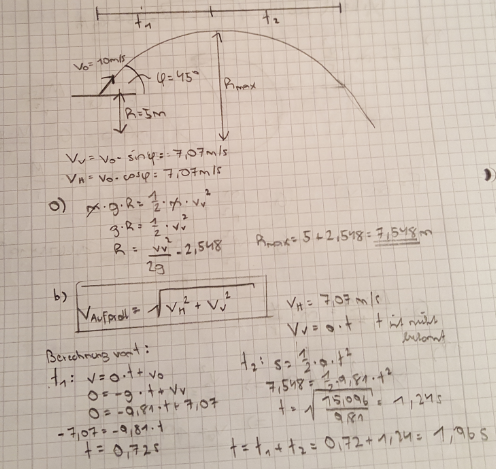 t₁ t₂
v₀ = 10m/s
φ = 45°
R = 5m
Rmax
Vv = v₀ · sinφ = 7,07m/s
VH = v₀ · cosφ = 7,07m/s
a) m · g · R = 1/2 · m · Vv²
g · R = 1/2 · Vv²
R = Vv²/2g = 2,548
Rmax = 5 + 2,548 = 7,548m
b) VAufprall = √(VH² + Vv²)
VH = 7,07 m/s
Vv = a · t t ist nicht bekannt
Berechnung von t:
t₁: v = a · t + v₀
0 = -g · t + Vv
0 = -9,81 · t + 7,07
-7,07 = -9,81 · t
t = 0,72s
t₂: s = 1/2 · a · t²
7,548 = 1/2 · 9,81 · t²
t = √(15,096/9,81) = 1,24s
t = t₁ + t₂ = 0,72 + 1,24 = 1,96s